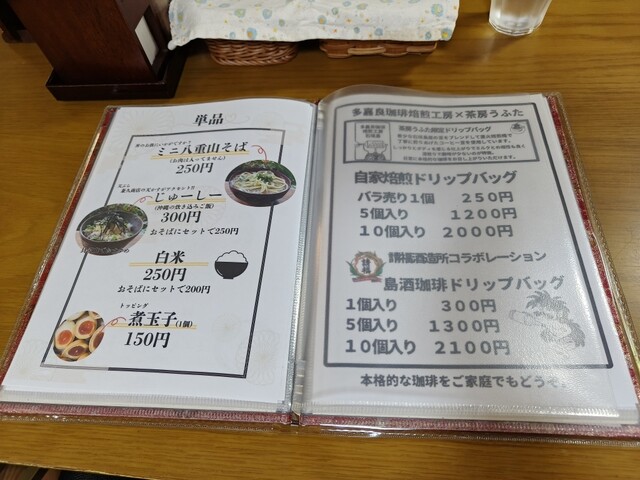 単品
ミニ八重山そば
(お肉は入ってません)
250円
じゅーしー
(沖縄の炊き込みご飯)
300円
おそばにセットで250円
白米
250円
おそばにセットで200円
トッピング
煮玉子(1個)
150円
多嘉良珈琲焙煎工房×茶房うふた
茶房うふた限定ドリップバッグ
自家焙煎ドリップバッグ
バラ売り1個 250円
5個入り 1200円
10個入り 2000円
請福酒造所コラボレーション
島酒珈琲ドリップバッグ
1個入り 300円
5個入り 1300円
10個入り 2100円
本格的な珈琲をご家庭でもどうぞ